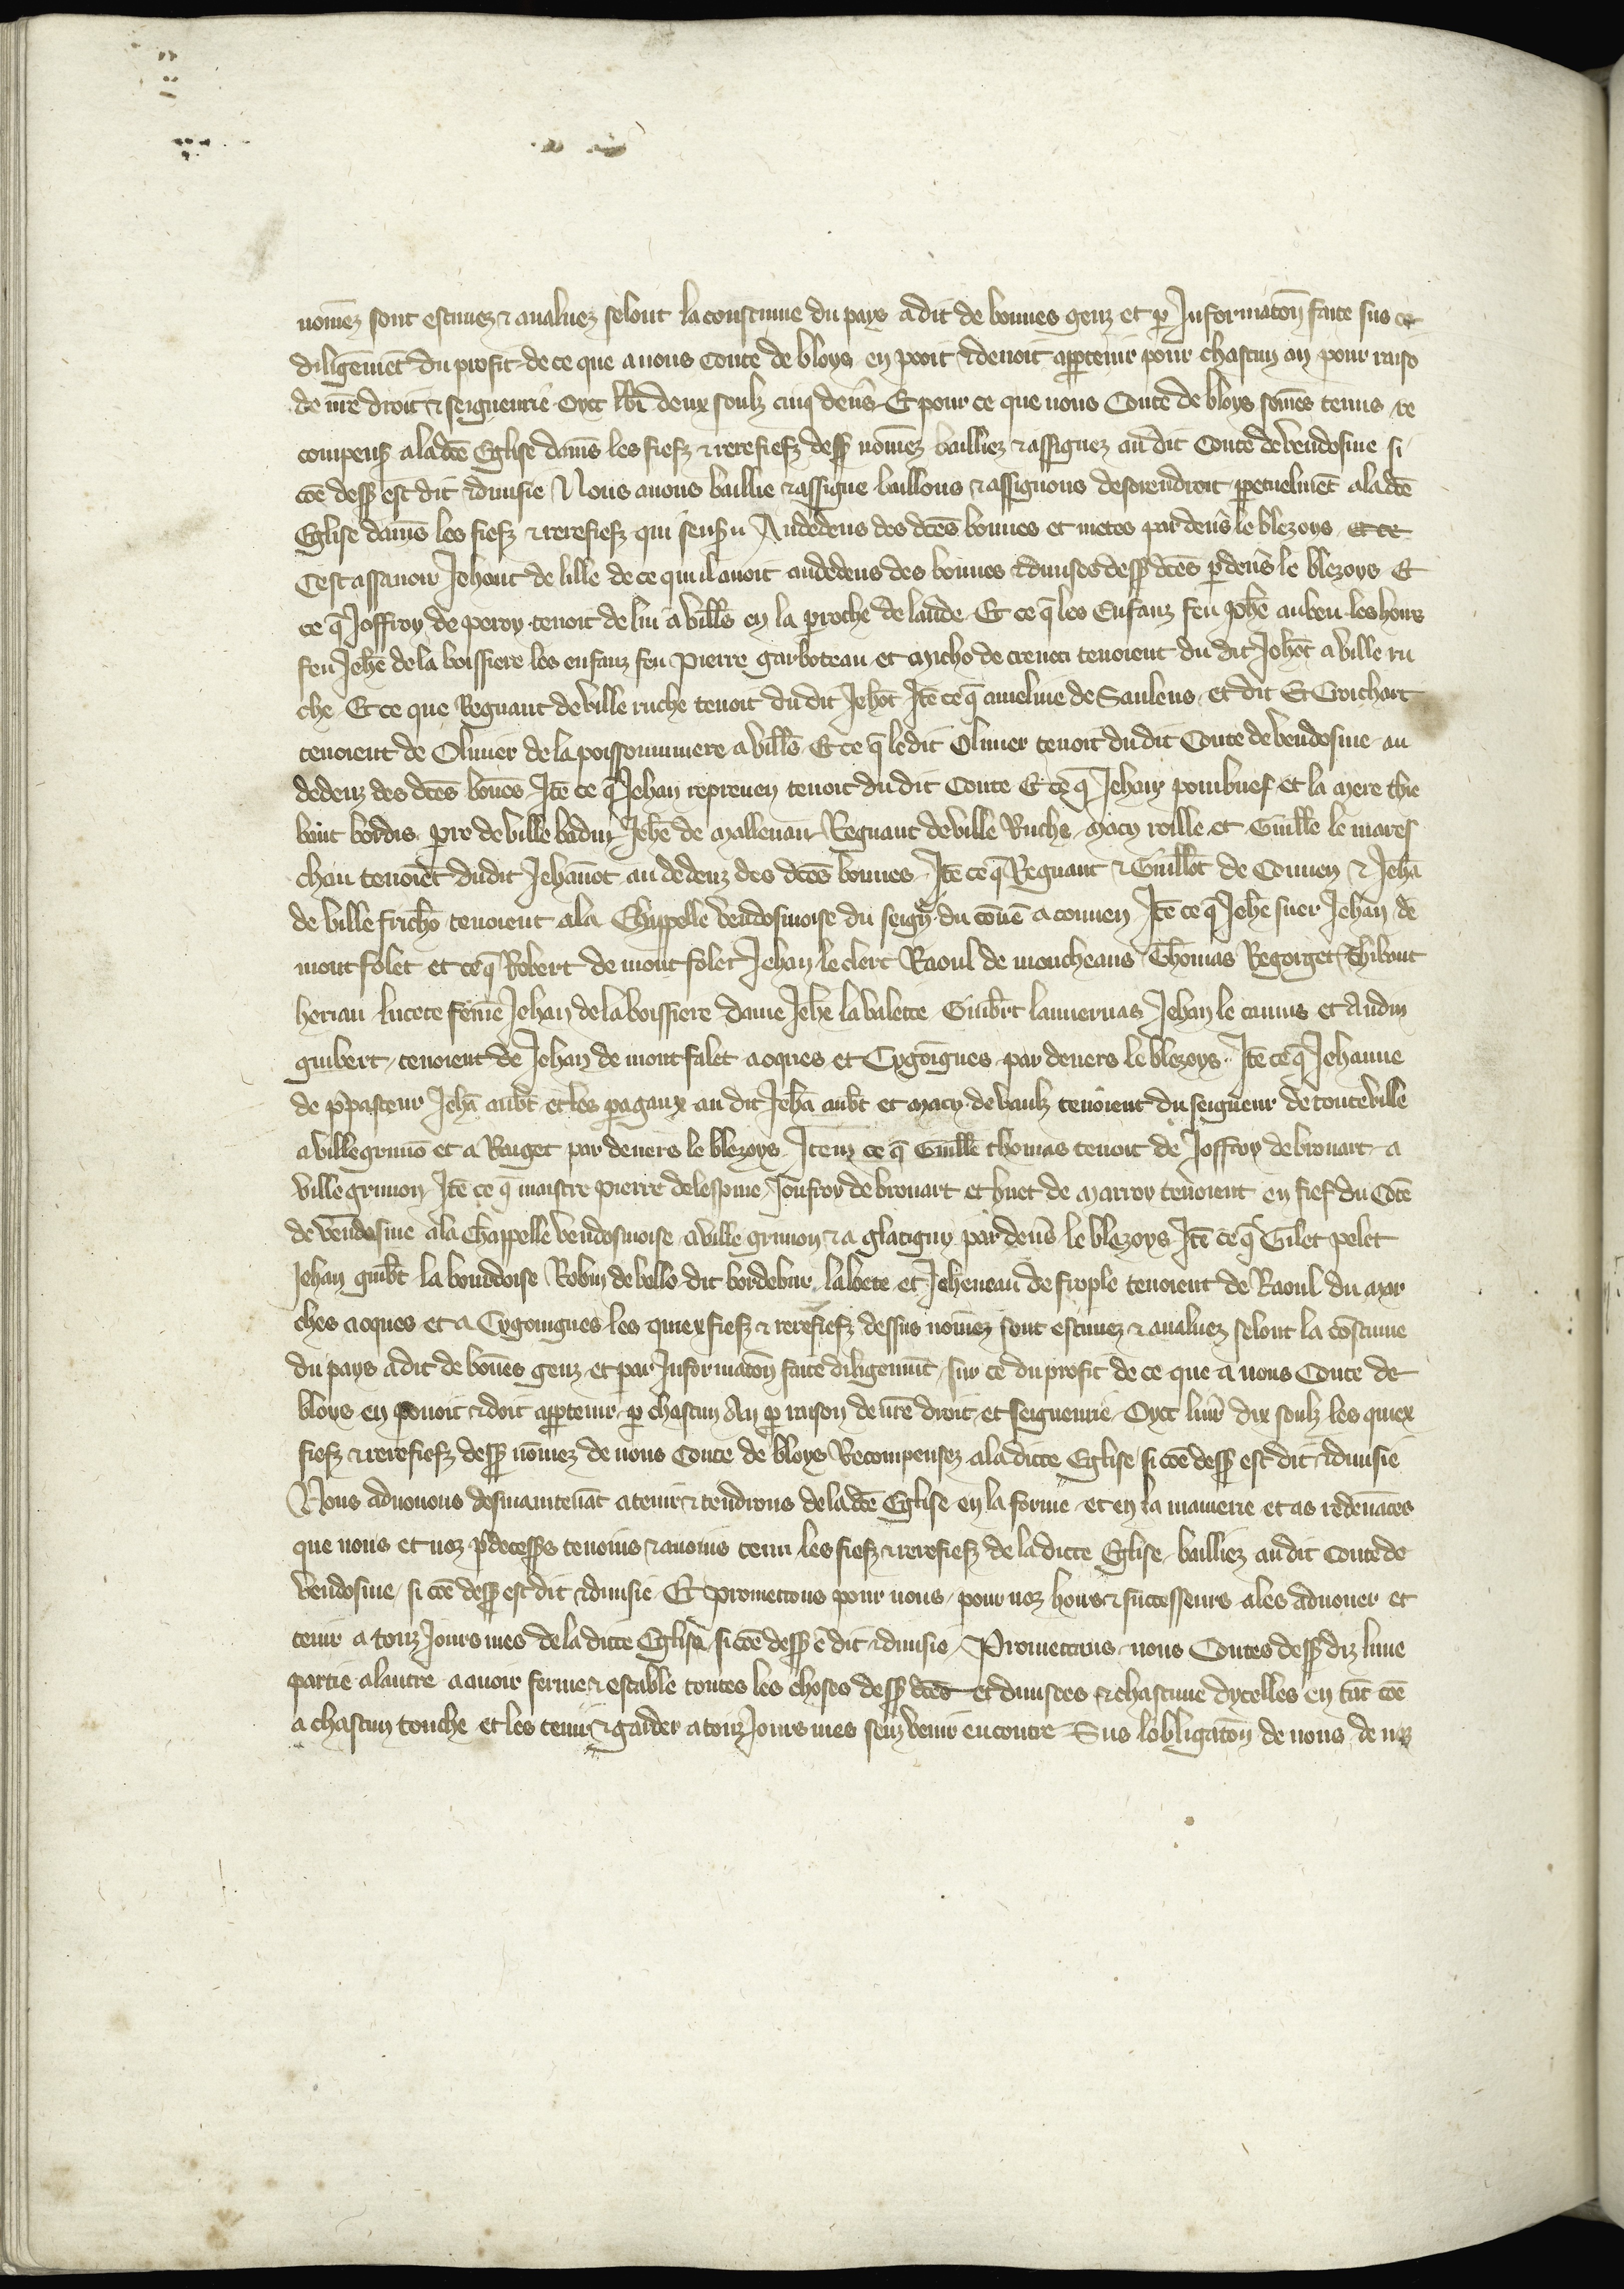 nomez sont estimez & avaluez selont la coustume du pays a dit de bonnes genz et p Informaton faite sus ce
diligemet du profit de ce que a nous Conte de bloys en pooit & devoit appteinr pour chascun an pour raiso
de nre droit & seigneurie Oyct lbr deux soulz cinq dens Et pour ce que nous Conte de bloys somes tenus re
compens a la dce Eglise dams les fiefz & rerefiefz dess nomez bailliez & assignez au dit Conte de vendosme si
coe dess est dit & divisie Nous avons baillie & assigne baillons & assignons desorendroit ppetuelmet a la dce
Eglise dams les fiefz & rerefiefz qui sensu Andedens des dces bonnes et metes par devs le blezoys et ce
Cest assavoir Jehant de lille de ce quil avoit andedens des bonnes & divises dess dces p devs le blezoys Et
ce q Joffroy de peroy tenoit de lui a vills en la proche de lande Et ce q les Enfanz feu Johe auben les hoirs
feu Jehe de la boissiere les enfanz feu pierre garboteau et micho de creneci tenoient du dit Johot a ville ru
che Et ce que Regnaut de ville ruche tenoit du dit Jehot Ite ce q ameline de Sauleus et dit Et Croichart
tenoient de Olivier de la poissonniere a vills Et ce q le dit Olivier tenoit du dit Conte de vendosme au
dedenz des dces bones Ite ce q Jehan repreuen tenoit du dit Conte Et ce q Jehan poinbuef et la mere thie
baut bordis pre de ville badin Jehe de mallevau Regnaut de ville Ruche macy roille et Guille le mares
chau tenoiet du dit Jehanot au dedenz des dces bonnes Ite ce q Regnaut & Guillot de Connen & Jeha
de ville fricho tenoient a la Chappelle vendosmoise du seigr du cone a connen Ite ce q Jehe suer Jehan de
mont folet et ce q Robert de mont folet Jehan le clerc Raoul de moncheaus Thomas Regorget Thibaut
heriau lucete feme Jehan de la boissiere dame Jehe la valette Guibrt lauvernas Jehan le camus et Audin
guibert tenoient de Jehan de mont falet a oques et Cygoignes par devers le blezoys Ite ce q Jehanne
de ppasteur Jeha aubt et les pagaux au dit Jeha aubt et macy de vaulz tenoient du seigneur de conteville
a ville grimo et a Rauget par devers le blezoys Item ce q Guille thomas tenoit de Joffroy de brouart a
ville grimon Ite ce q maistre pierre de lespine Joufroy de brouart et huet de marroy tenoient en fief du Cote
de vendosme a la Chappelle vendosmoise a ville grimon & a glatigny par devs le blezoys Ite ce q Gilet pelet
Jehan guibt la bourdoise Robin de vello dit bordebur labete et Jeheneau de frople tenoient de Raoul du mar
ches a oques et a Cygoingnes les quiex fiefz & rerefiefz dessus nomez sont estimez & avaluez selont la costume
du pays a dit de bones genz et par Informaton faite diligemmt sur ce du profit de ce que a nous Conte de
bloys en povoit & doit apptenir p chascun An p raison de nre droit et seigneurie Oyct livr dix soulz les quiex
fiefz & rerefiefz dess nomez de nous Conte de bloys Recompensez a la dicte Eglise si coe dess est dit & divisie
Nous advouons desmaintenat a tenir & tendrons de la dce Eglise en la forme et en la maniere et as redevaces
que nous et noz pdecesss tenoins & avoins tenu les fiefz & rerefiefz de la dicte Eglise bailliez au dit Conte de
vendosme si coe dess est dit & divisie Et promettons pour nous pour noz hoirs & successeurs a les advouer et
tenir a touz Jours mes de la dicte Eglise si coe dess e dit & divisie Promettons nous Contes dess diz lune
partie a lautre a avoir ferme & estable toutes les choses dess dces et divisees & chascune dycelles en tat coe
a chascun touche et les tenir & garder a touz Jours mes senz venir encontre Sus lobligaton de nous de noz